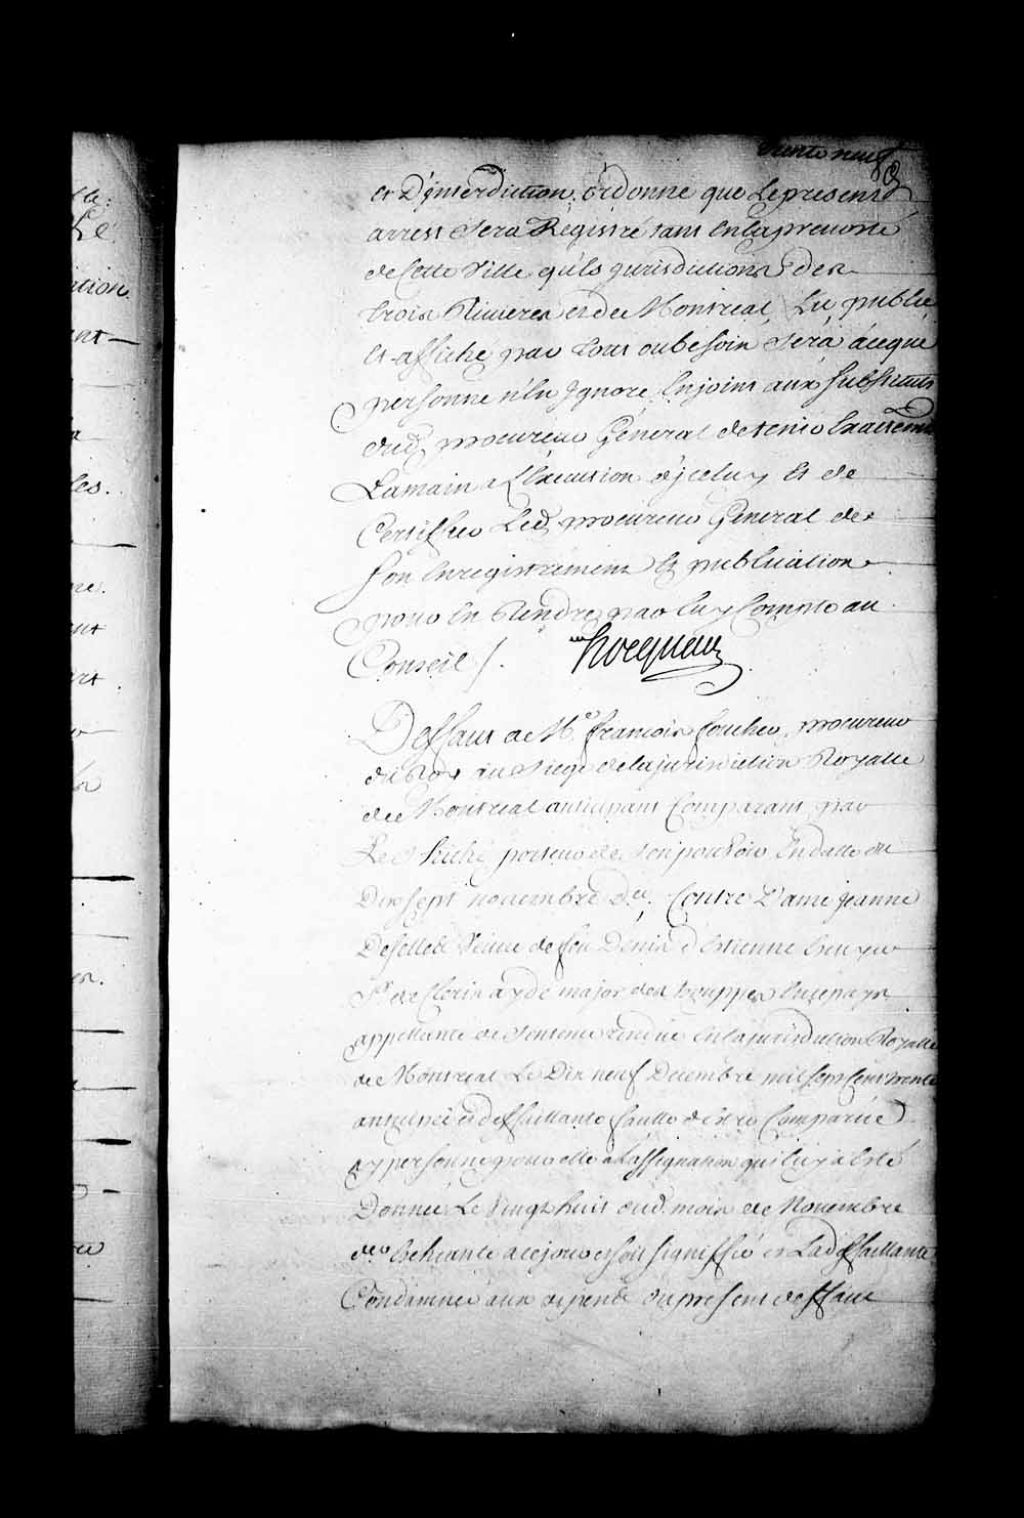 trente neuf
39
et D'ynterdiction, ordonne que Le present
arrest sera Registré tant En la prevosté
de Cette Ville qu'Es jurisdictions des
trois Rivieres et de Montreal, Lu, publié
Et affiché par tout ou besoin sera à ceque
personne n'En Ignore, Enjoint aux substituts
dud. procureur General de tenir Exactement
La main a L'Execution d'jceluy Et de
Certiffier Led. procureur General de
son Enregistrement Et publication
pour En Rendre par luy Compte au
Conseil /.
hocquart
Deffaut a Me. francois foucher, procureur
du Roy au siege de la jurisdiction Royalle
de Montreal anticipant Comparant par
Le Sr. hiché porteur de son pouvoir En datte du
Dix sept novembre der. Contre Dame jeanne
Veuve de feu Denis d'Estienne
Sr. de Clerin ayde major des trouppes En ce pays
appellante de sentence rendue En la jurisdiction Royalle
de Montreal Le Dix neuf Decembre mil sept Cent trente
anticipée et deffaillante faulte d'Estre Comparüe
ny personne pour elle a L'assignation qui luy a Esté
Donnée Le Vingt huit dud. mois de Novembre
der. Echeante a cejour et soit signiffié et Lad. deffaillante
Condamnée aux depens du present deffaut